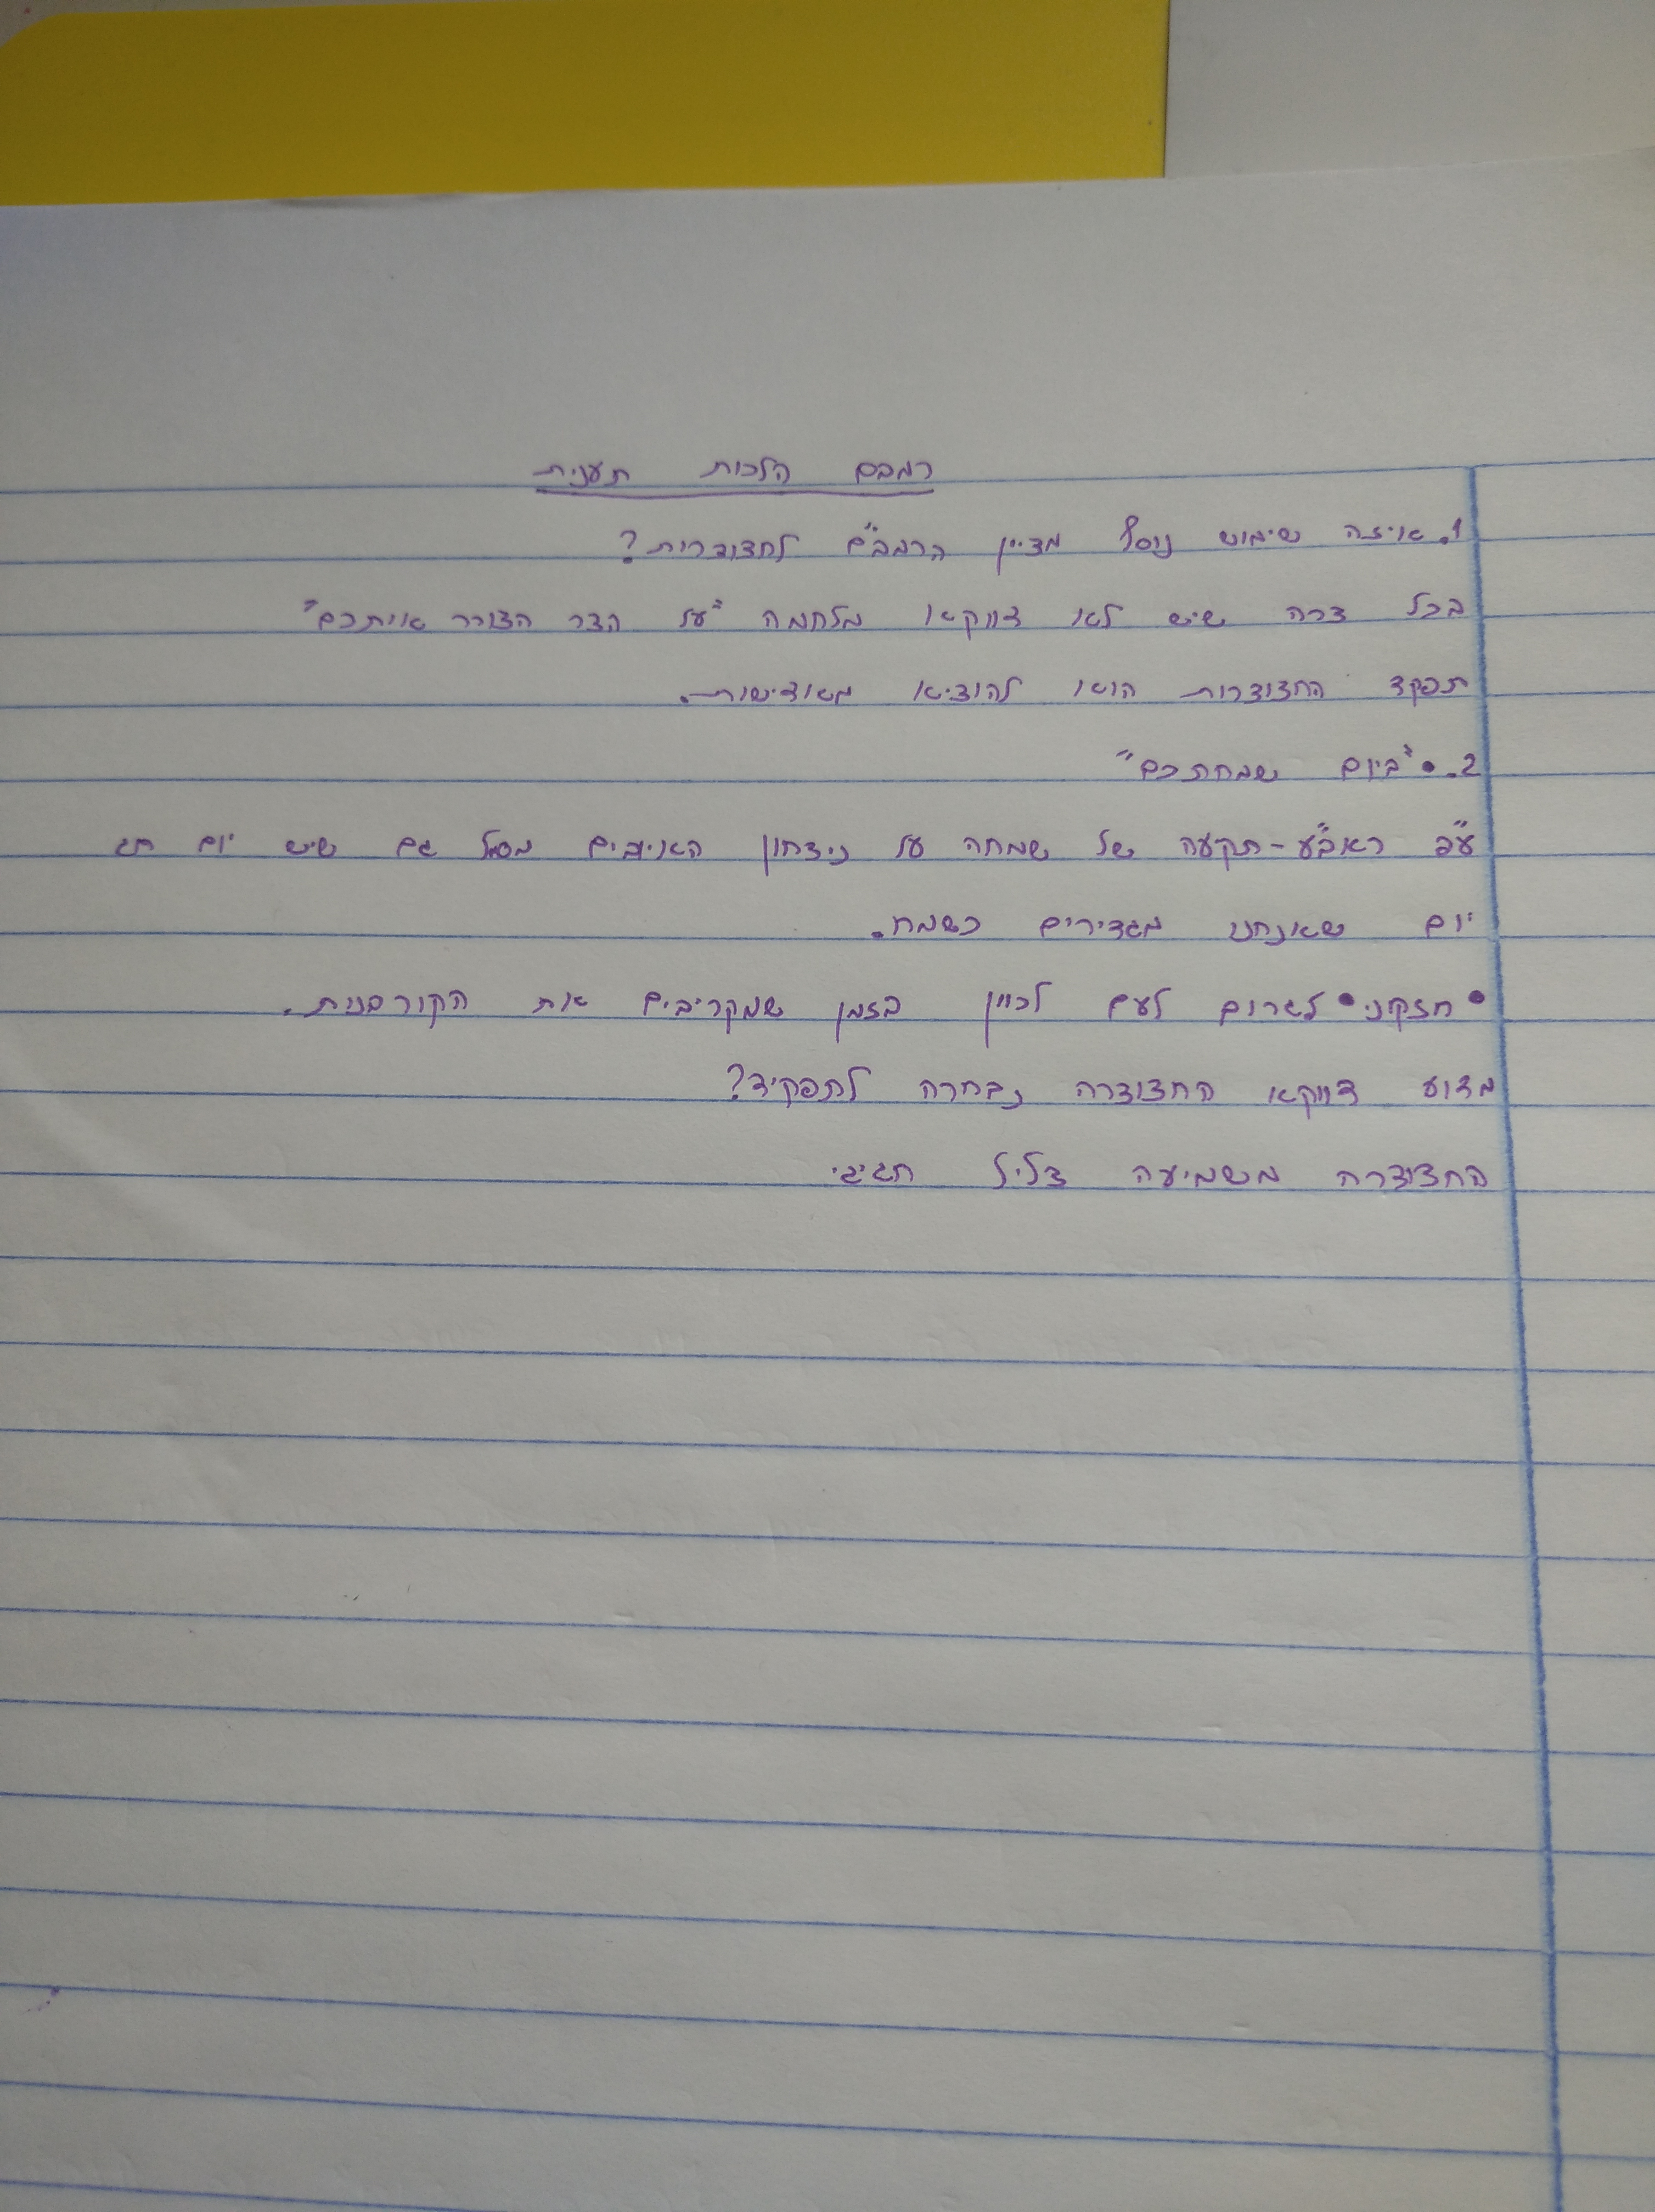 רמבם הלכות תענית
1. איזה שימוש נוסף מציין הרמב"ם לחצוצרות?
בכל צרה שיש לא דווקא מלחמה "על הצר הצורר איתכם"
תפקד החצוצרות הוא להוציא מאדישות.
2. • "ביום שמחתכם"
ע"פ ראב"ע - תקיעה של שמחה על ניצחון האויבים מסמל גם שיש יום חג
יום שאנחנו מגדירים כשמח.
• חזקוני • לגרום לעם לכוין בזמן שמקריבים את הקורבנות.
מדוע דווקא החצוצרה נבחרה לתפקיד?
החצוצרה משמיעה צליל חגיגי